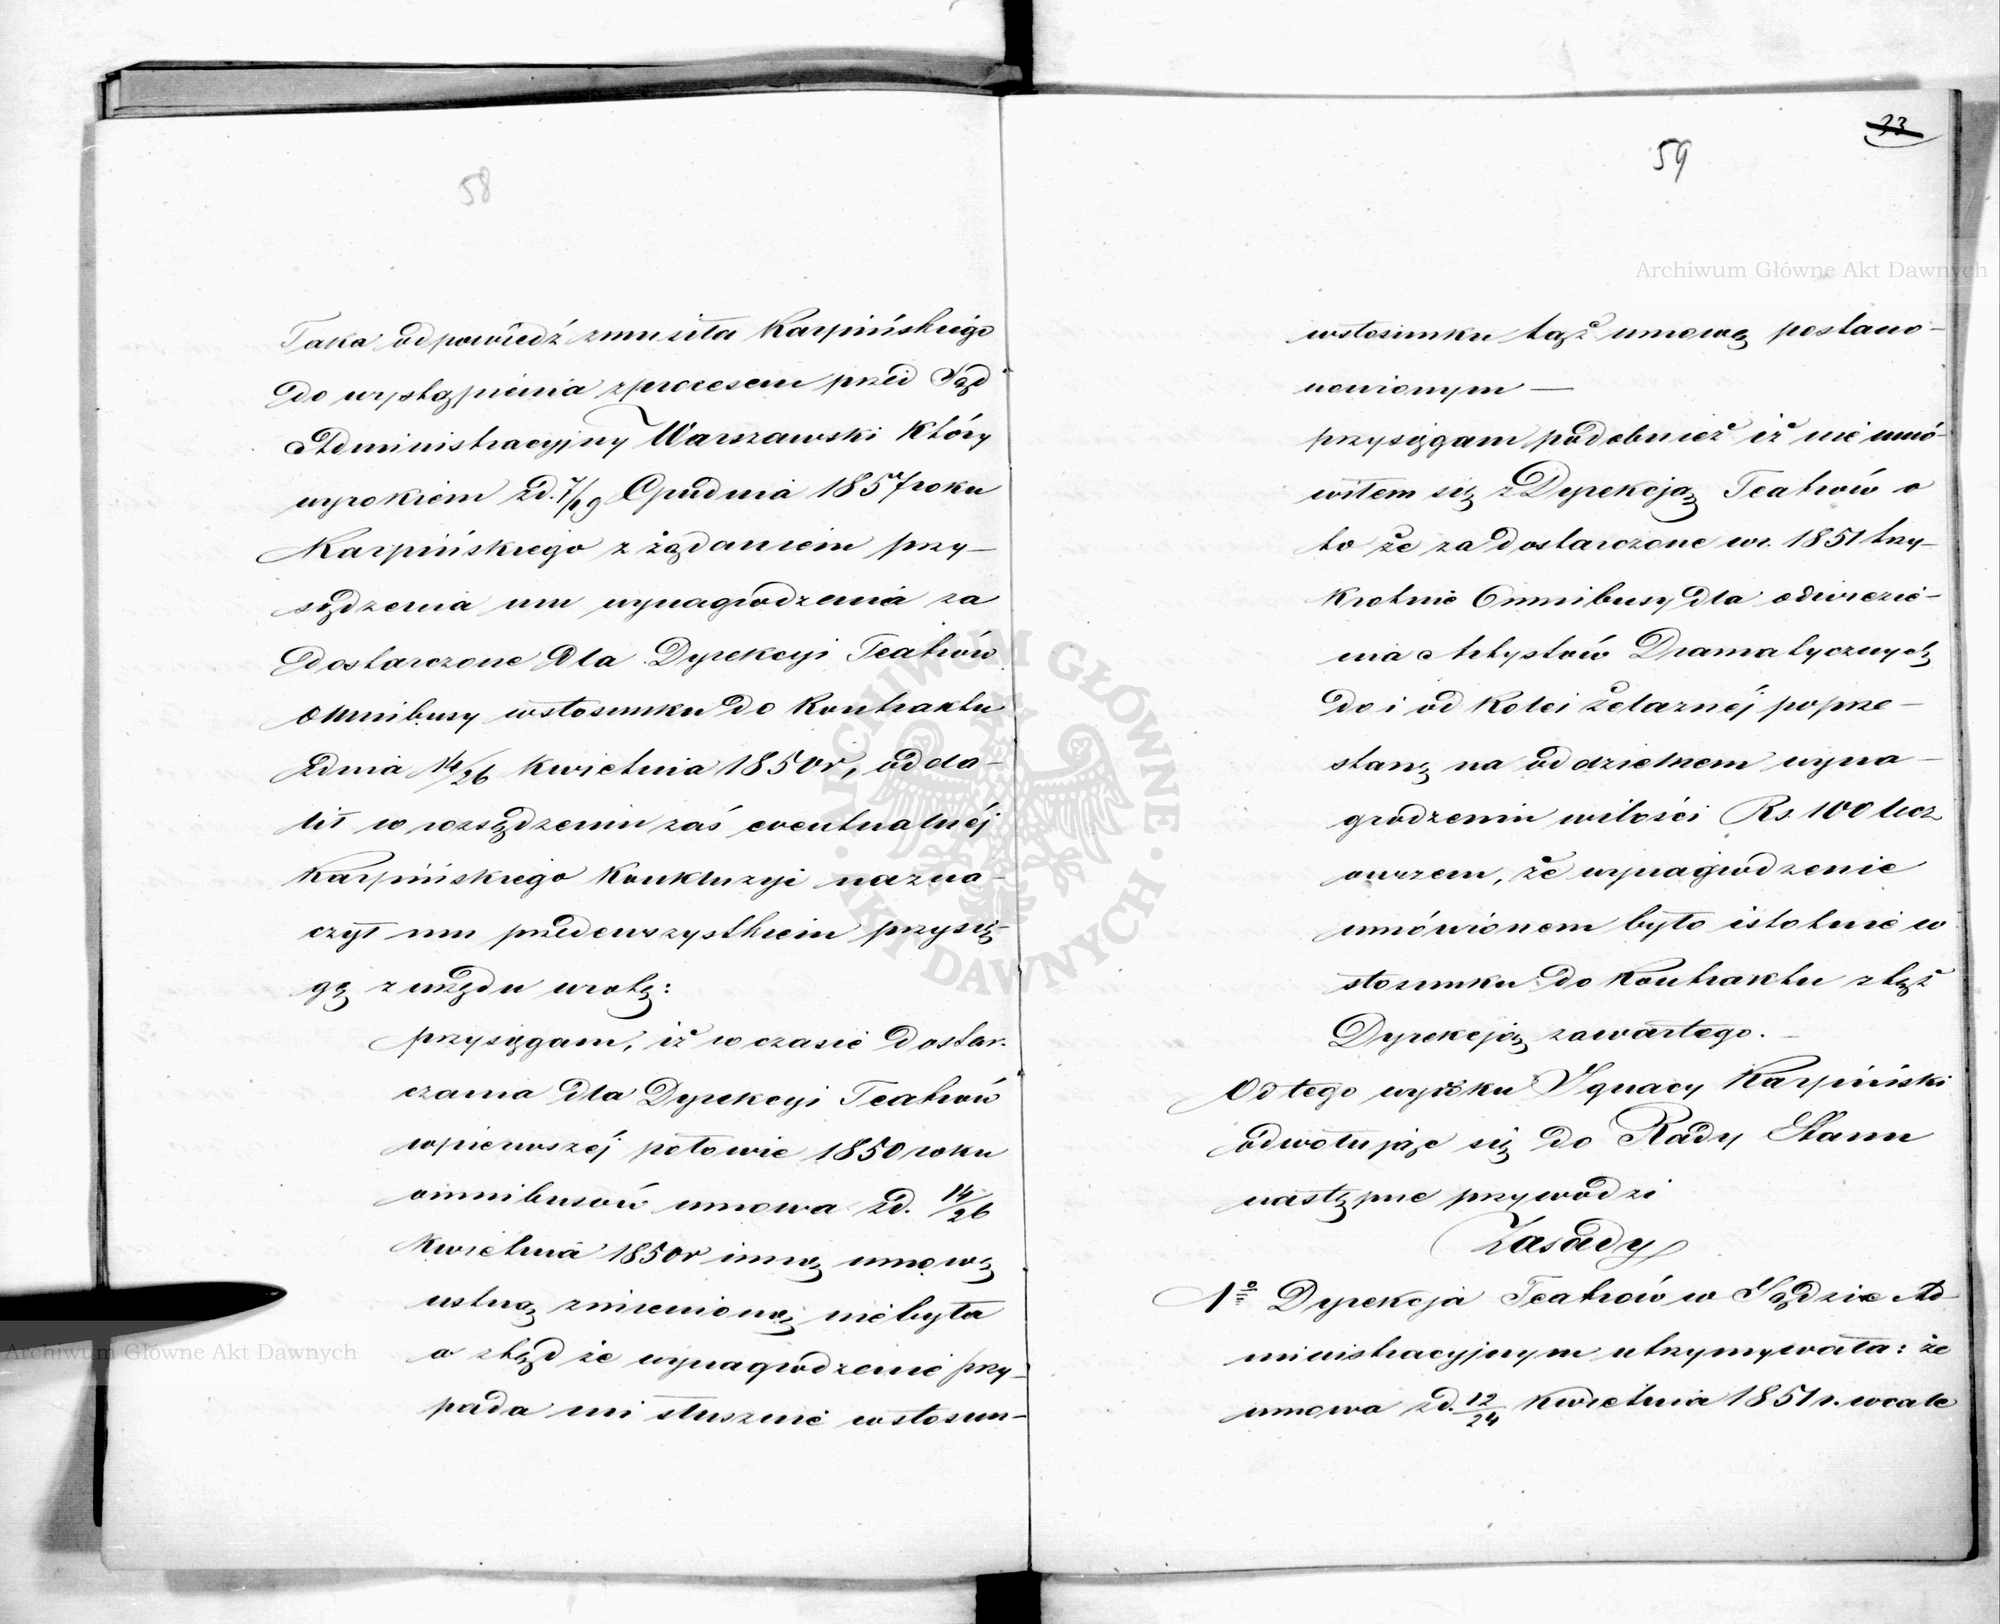 58
Taka odpowiedź zmusiła Karpińskiego
do wystąpienia z procesem przed Sąd
Administracyjny Warszawski który
wyrokiem z d. 7/19 Grudnia 1857 roku
Karpińskiego z żądaniem przy-
sądzenia mu wynagrodzenia za
dostarczone dla Dyrekcyi Teatrów
omnibusy wstosunku do Kontraktu
zdnia 14/26 Kwietnia 1850r, odda-
lił w rozsądzeniu zaś eventualnéj
Karpińskiego Konkluzyi nazna-
czył mu przedewszystkiem przysię-
gę z urzędu w rotę:
przysięgam, iż w czasie dostar-
czania dla Dyrekcyi Teatrów
wpierwszéj połowie 1850 roku
omnibusów umowa z d. 14/26
Kwietnia 1850r inną umową
ustną zmienioną niebyła
a ztąd że wynagrodzenie przy-
pada mi słusznie wstosun-
23
59
wstosunku tąż umową postano-
nowionym —
przysięgam podobnież iż nie umó-
wiłem się z Dyrekcją Teatrów o
to że za dostarczone w r. 1851 trzy-
krotnie Omnibusy dla odwiezie-
nia Artystów Dramatycznych
do i od Kolei żelaznéj poprze-
stanę na oddzielnem wyna-
grodzeniu wilości Rs. 100 lecz
owszem, że wynagrodzenie
umówionem było istotnie w
stosunku do Kontraktu z tąż
Dyrekcją zawartego. —
Od tego wyroku Ignacy Karpiński
odwołując się do Rady Stanu
następne przywodzi
Zasady
1º Dyrekcja Teatrów w Sądzie Ad-
ministracyjnym utrzymywała: że
umowa z d. 12/24 Kwietnia 1851 r. wcale
Archiwum Główne Akt Dawnych
Archiwum Główne Akt Dawnych
ARCHIWUM GŁÓWNE · AKT DAWNYCH ·